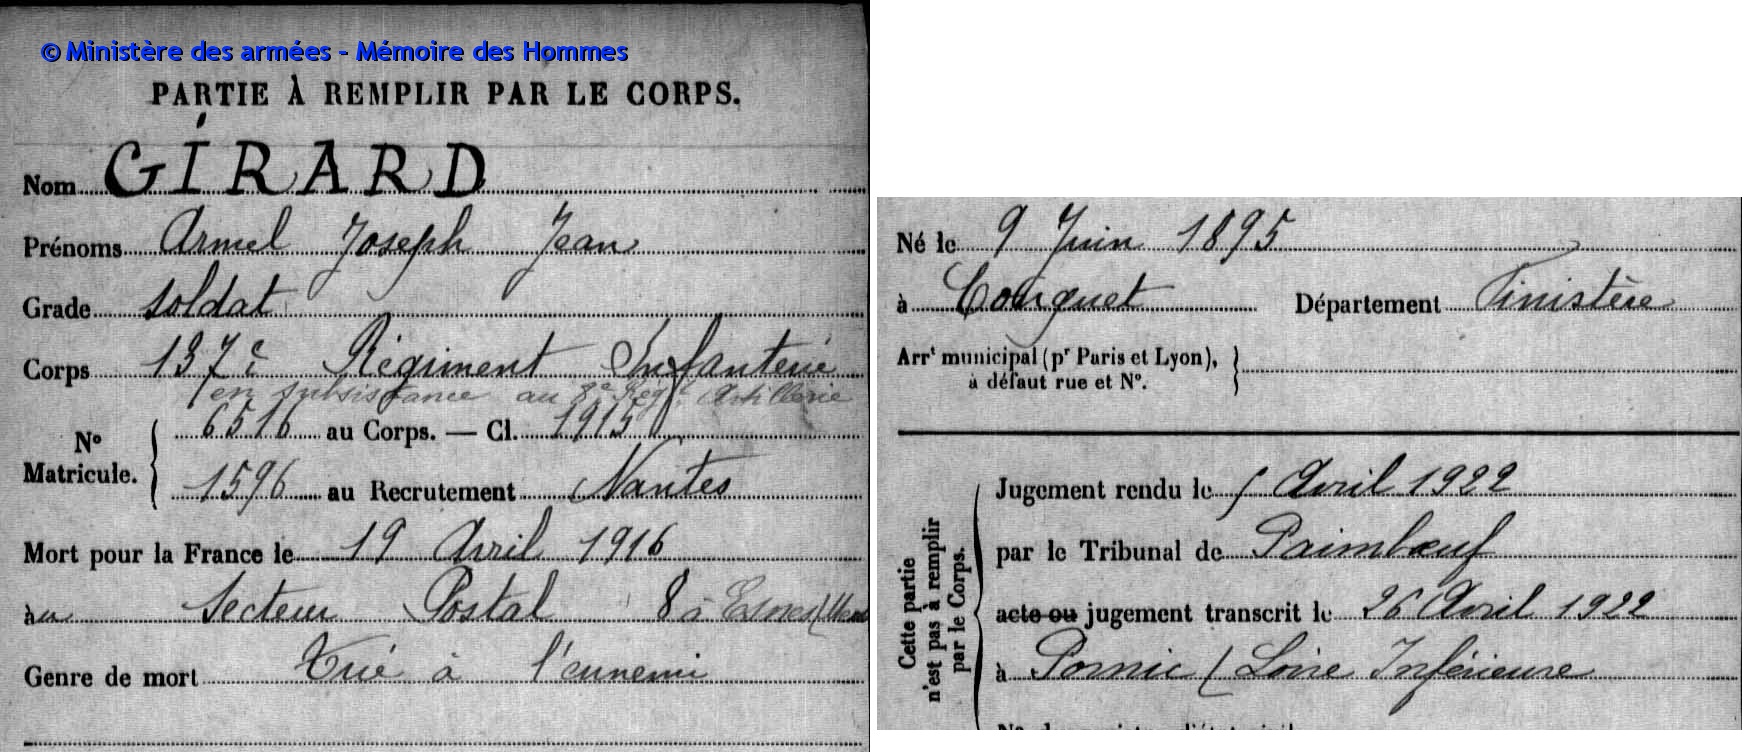 © Ministère des armées - Mémoire des Hommes
PARTIE À REMPLIR PAR LE CORPS.
Nom GIRARD
Prénoms Armel Joseph Jean
Grade soldat
Corps 137e Régiment Infanterie
en subsistance au 8e Régt Artillerie
N° Matricule. 6516 au Corps. — Cl. 1915
1596 au Recrutement Nantes
Mort pour la France le 19 Avril 1916
au Secteur Postal 8 à Esnes (Meuse
Genre de mort Tué à l'ennemi
Né le 9 Juin 1895
à Conquet Département Finistère
Arrt municipal (pr Paris et Lyon),
à défaut rue et N°.
Cette partie n'est pas à remplir par le Corps.
Jugement rendu le 5 Avril 1922
par le Tribunal de Paimbœuf
acte ou jugement transcrit le 26 Avril 1922
à Pornic (Loire Inférieure